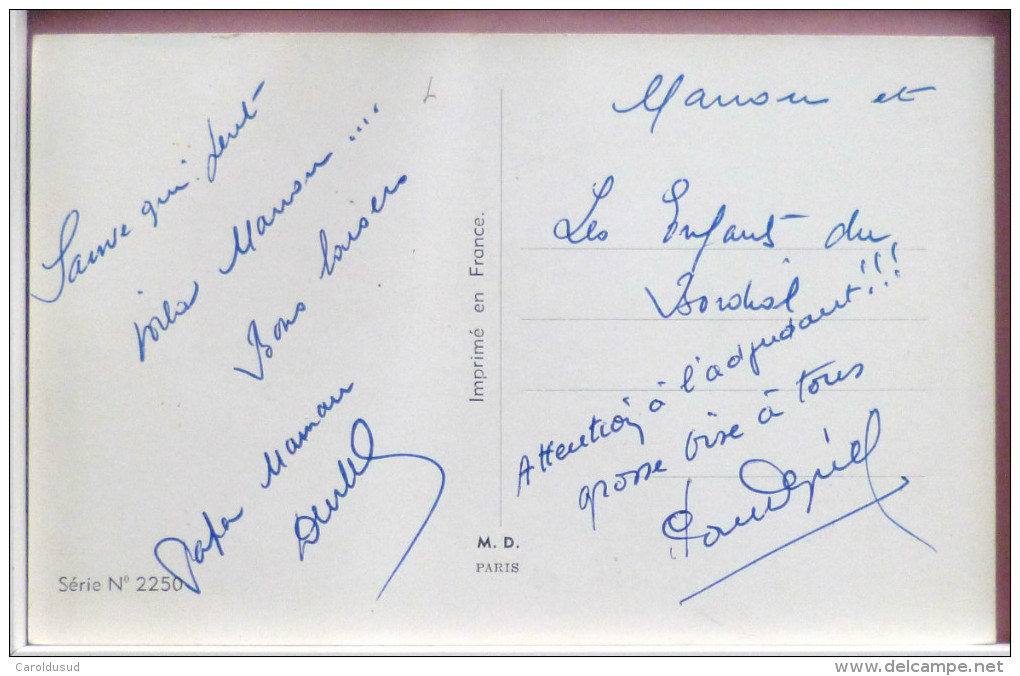 Sauve qui peut
voila Manou ....
Bons baisers
Papa Maman
Série Nº 2250
Imprimé en France.
M. D.
PARIS
Manou et
Les Enfants du
Attention à l'adjudant!!!
grosse bise à tous
Caroldusud
www.delcampe.net